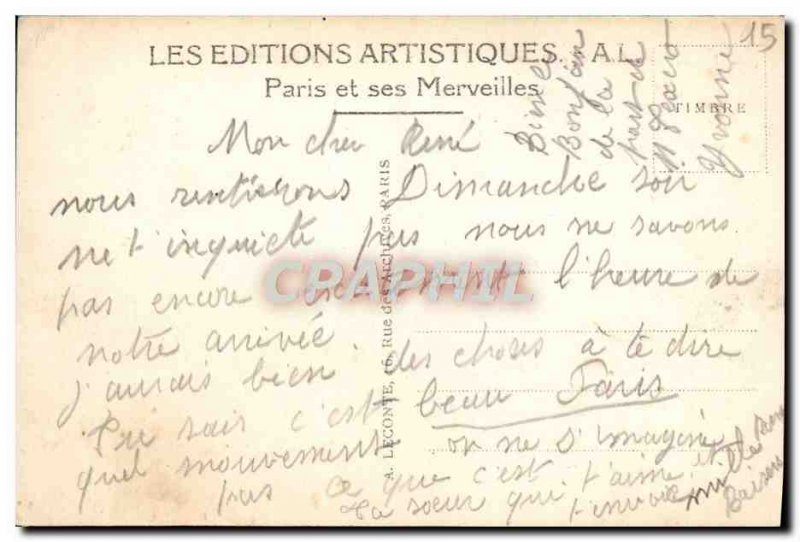 15
LES EDITIONS ARTISTIQUES. A.L
Paris et ses Merveilles
TIMBRE
A. LECONTE, 16, Rue des Archives, PARIS
CPAPHIL
Mon cher René
nous rentirons Dimanche soir
ne t'inquiete pas nous ne savons
pas encore exactement l'heure de
notre arrivée.
j'aurais bien des choses à te dire
Tu sais c'est beau Paris
quel mouvement on ne s'imagine
pas ce que c'est
ta soeur qui t'aime et
t'envoie mille bons
Baisers
Yvonne
Bien le
Bonjour
de la
part de